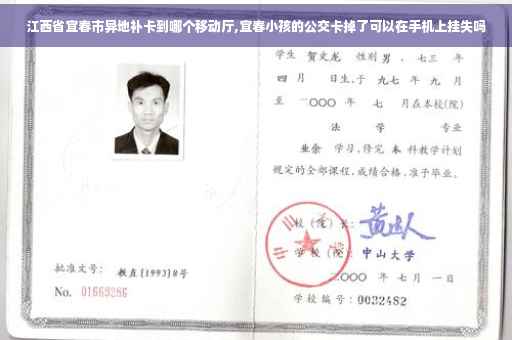 江西省宜春市异地补卡到哪个移动厅,宜春小孩的公交卡掉了可以在手机上挂失吗
学生 贺文龙 性别 男 、七三 年
四 月 日生,于 九七 年 九 月
至 二〇〇〇 年 七 月在本校(院)
法 学 专业
业余 学习,修完 本 科教学计划
规定的全部课程,成绩合格,准予毕业。
校(院)长:
学校(院): 中山大学
二〇〇〇 年 七 月 一日
学校编号: 0032482
批准文号: 教直[1993]8号
No. 01669286